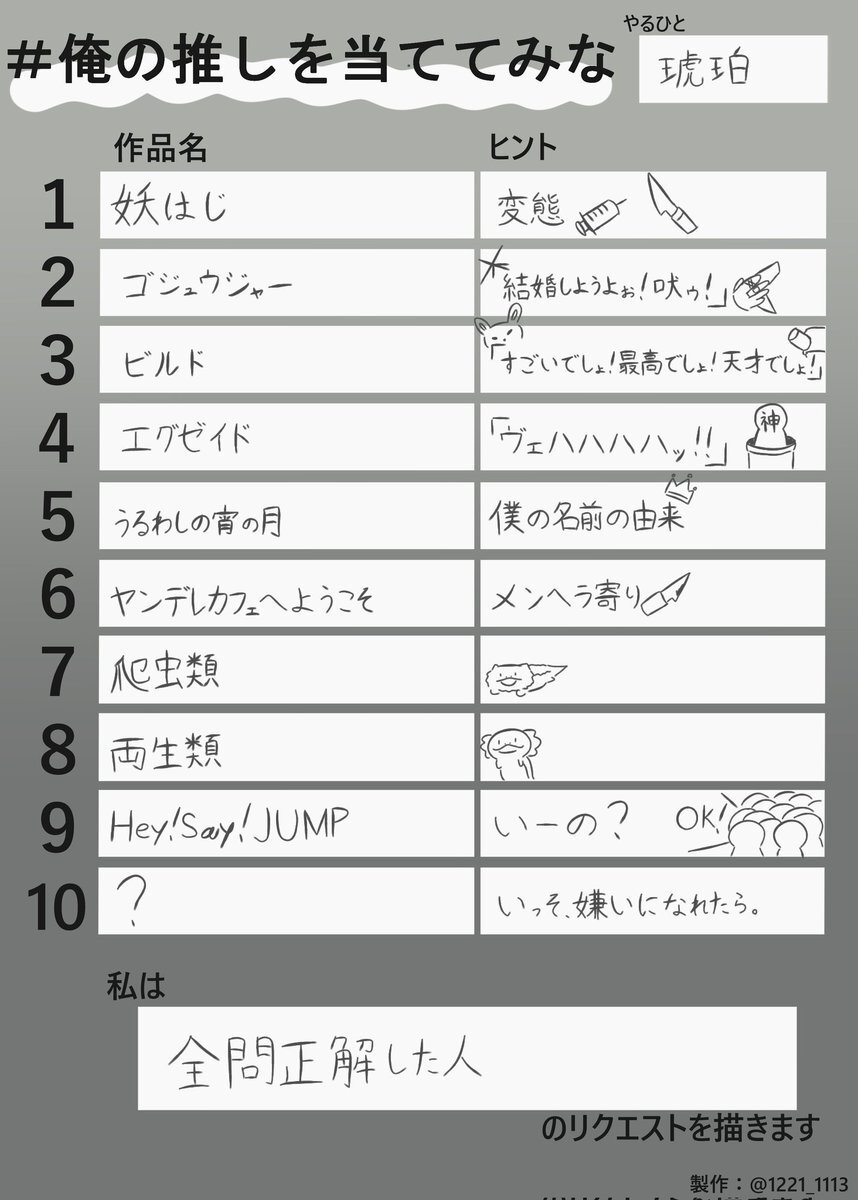 #俺の推しを当ててみな
やるひと
琥珀
作品名
ヒント
1
妖はじ
変態
2
ゴジュウジャー
「結婚しようよぉ!吠ゥ!」
3
ビルド
「すごいでしょ!最高でしょ!天才でしょ!」
4
エグゼイド
「ヴェハハハハッ!!」
神
5
うるわしの宵の月
僕の名前の由来
6
ヤンデレカフェへようこそ
メンヘラ寄り
7
爬虫類
8
両生類
9
Hey!Say!JUMP
いーの?
OK!
10
?
いっそ、嫌いになれたら。
私は
全問正解した人
のリクエストを描きます
製作:@1221_1113